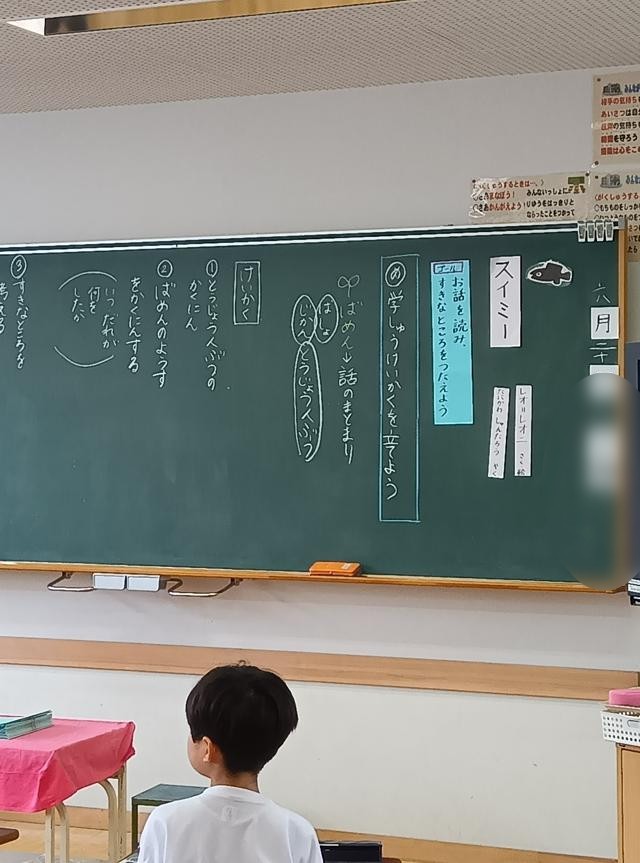 六
月
二十
スイミー
レオ=レオニ さく・絵
たにかわ しゅんたろう やく
ゴール
お話を読み、
すきなところをつたえよう
め 学しゅうけいかくを立てよう
ばめん→話のまとまり
ばしょ
じかん
とうじょう人ぶつ
けいかく
①とうじょう人ぶつの
かくにん
②ばめんのようす
をかくにんする
いつ だれが
何を
したか
③すきなところを
考える